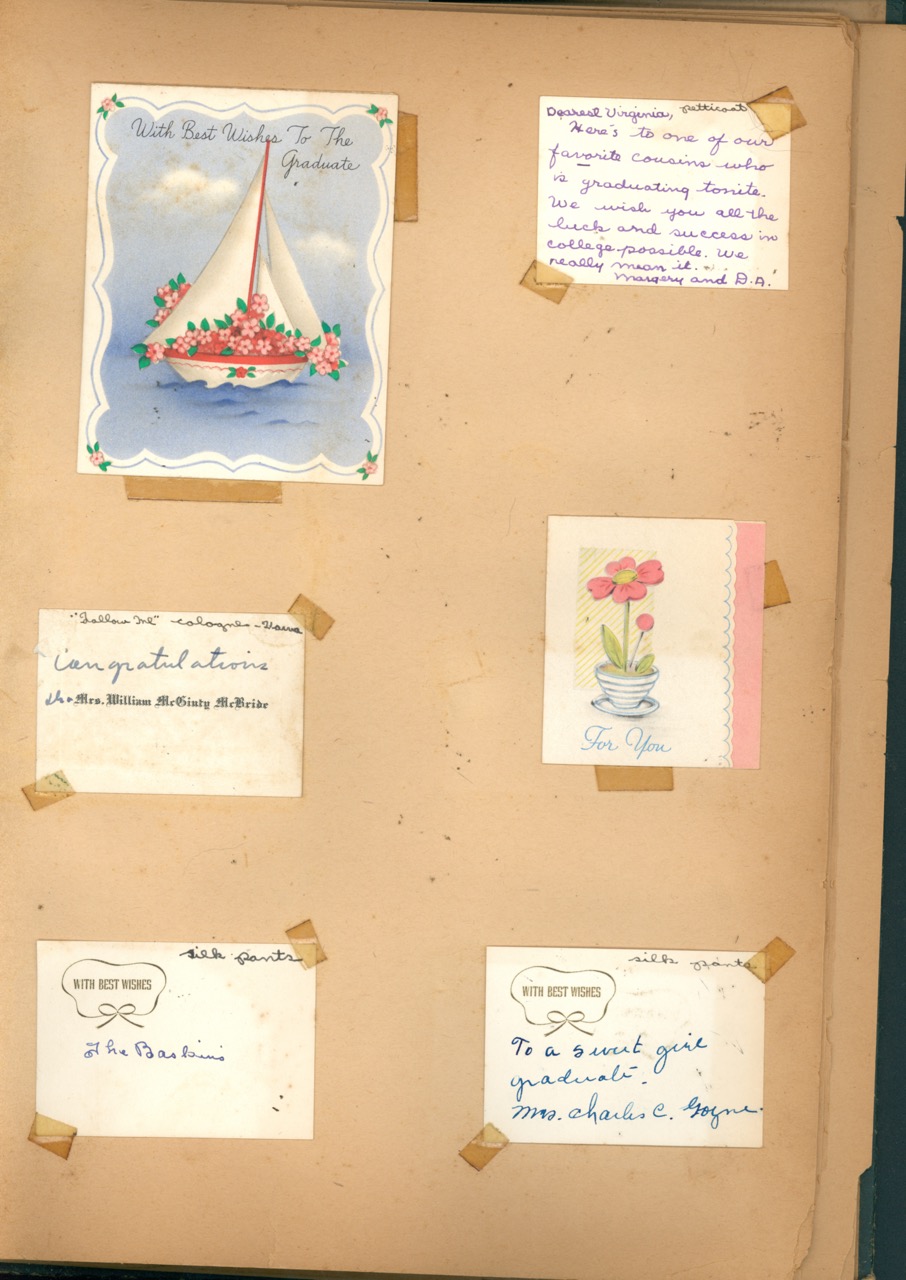 With Best Wishes To The
Graduate
Dearest Virginia, petticoat
Here's to one of our
favorite cousins who
is graduating tonite.
We wish you all the
luck and success in
college possible. We
really mean it.
Margery and D.A.
"Follow Me" cologne -
Congratulations
Mrs. William McGinty McBride
For You
silk pants
WITH BEST WISHES
The Baskins
silk pants
WITH BEST WISHES
To a sweet girl
graduate.
Mrs. Charles C. Goyne.